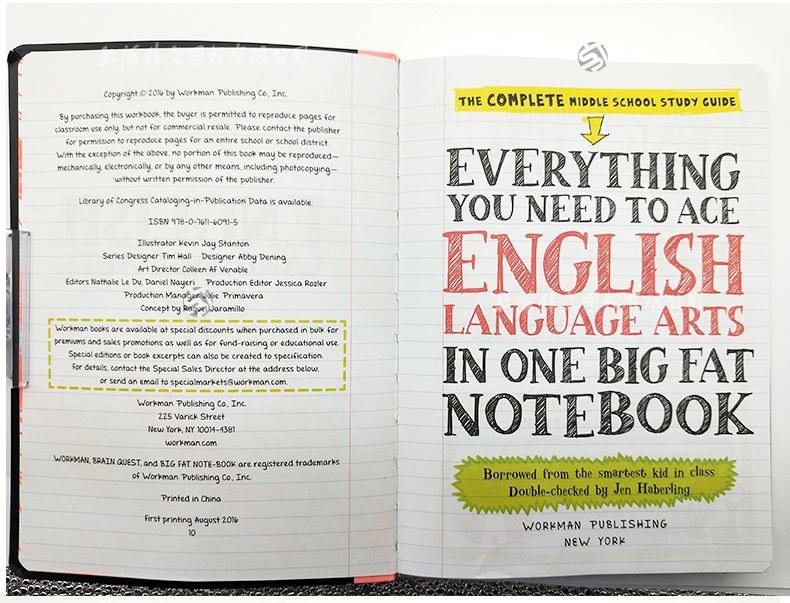 Copyright © 2016 by Workman Publishing Co., Inc.
By purchasing this workbook, the buyer is permitted to reproduce pages for
classroom use only, but not for commercial resale. Please contact the publisher
for permission to reproduce pages for an entire school or school district.
With the exception of the above, no portion of this book may be reproduced—
mechanically, electronically, or by any other means, including photocopying—
without written permission of the publisher.
Library of Congress Cataloging-in-Publication Data is available.
ISBN 978-0-7611-6091-5
Illustrator Kevin Jay Stanton
Series Designer Tim Hall Designer Abby Dening
Art Director Colleen AF Venable
Editors Nathalie Le Du, Daniel Nayeri Production Editor Jessica Rozler
Production Primavera
Concept by Jaramillo
Workman books are available at special discounts when purchased in bulk for
premiums and sales promotions as well as for fund-raising or educational use.
Special editions or book excerpts can also be created to specification.
For details, contact the Special Sales Director at the address below,
or send an email to specialmarkets@workman.com.
Workman Publishing Co., Inc.
225 Varick Street
New York, NY 10014-4381
workman.com
WORKMAN, BRAIN QUEST, and BIG FAT NOTE-BOOK are registered trademarks
of Workman Publishing Co., Inc.
Printed in China
First printing August 2016
10
THE COMPLETE MIDDLE SCHOOL STUDY GUIDE
EVERYTHING
YOU NEED TO ACE
ENGLISH
LANGUAGE ARTS
IN ONE BIG FAT
NOTEBOOK
Borrowed from the smartest kid in class
Double-checked by Jen Haberling
WORKMAN PUBLISHING
NEW YORK